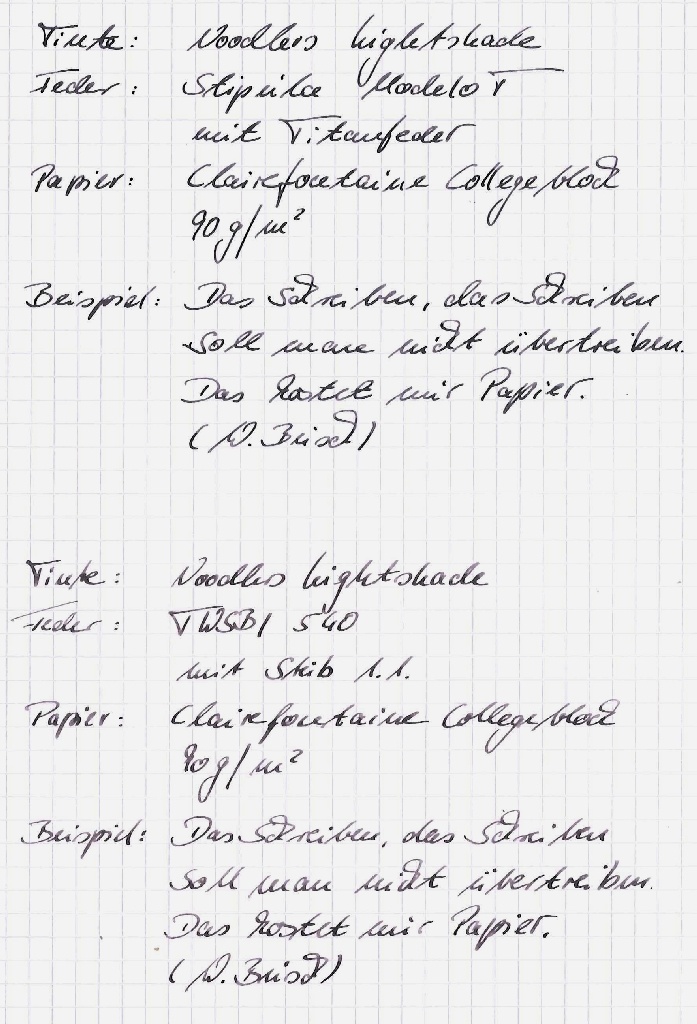 Tinte: Noodlers Nightshade
Feder: Stipula Modelo T
mit Titanfeder
Papier: Clairefontaine Collegeblock
90g/m²
Beispiel: Das Schreiben, das Schreiben
soll man nicht übertreiben.
Das kostet nur Papier.
(W. Busch)
Tinte: Noodlers Nightshade
Feder: TWSBI 540
mit Stub 1.1.
Papier: Clairefontaine Collegeblock
90g/m²
Beispiel: Das Schreiben, das Schreiben
soll man nicht übertreiben.
Das kostet nur Papier.
(W. Busch)